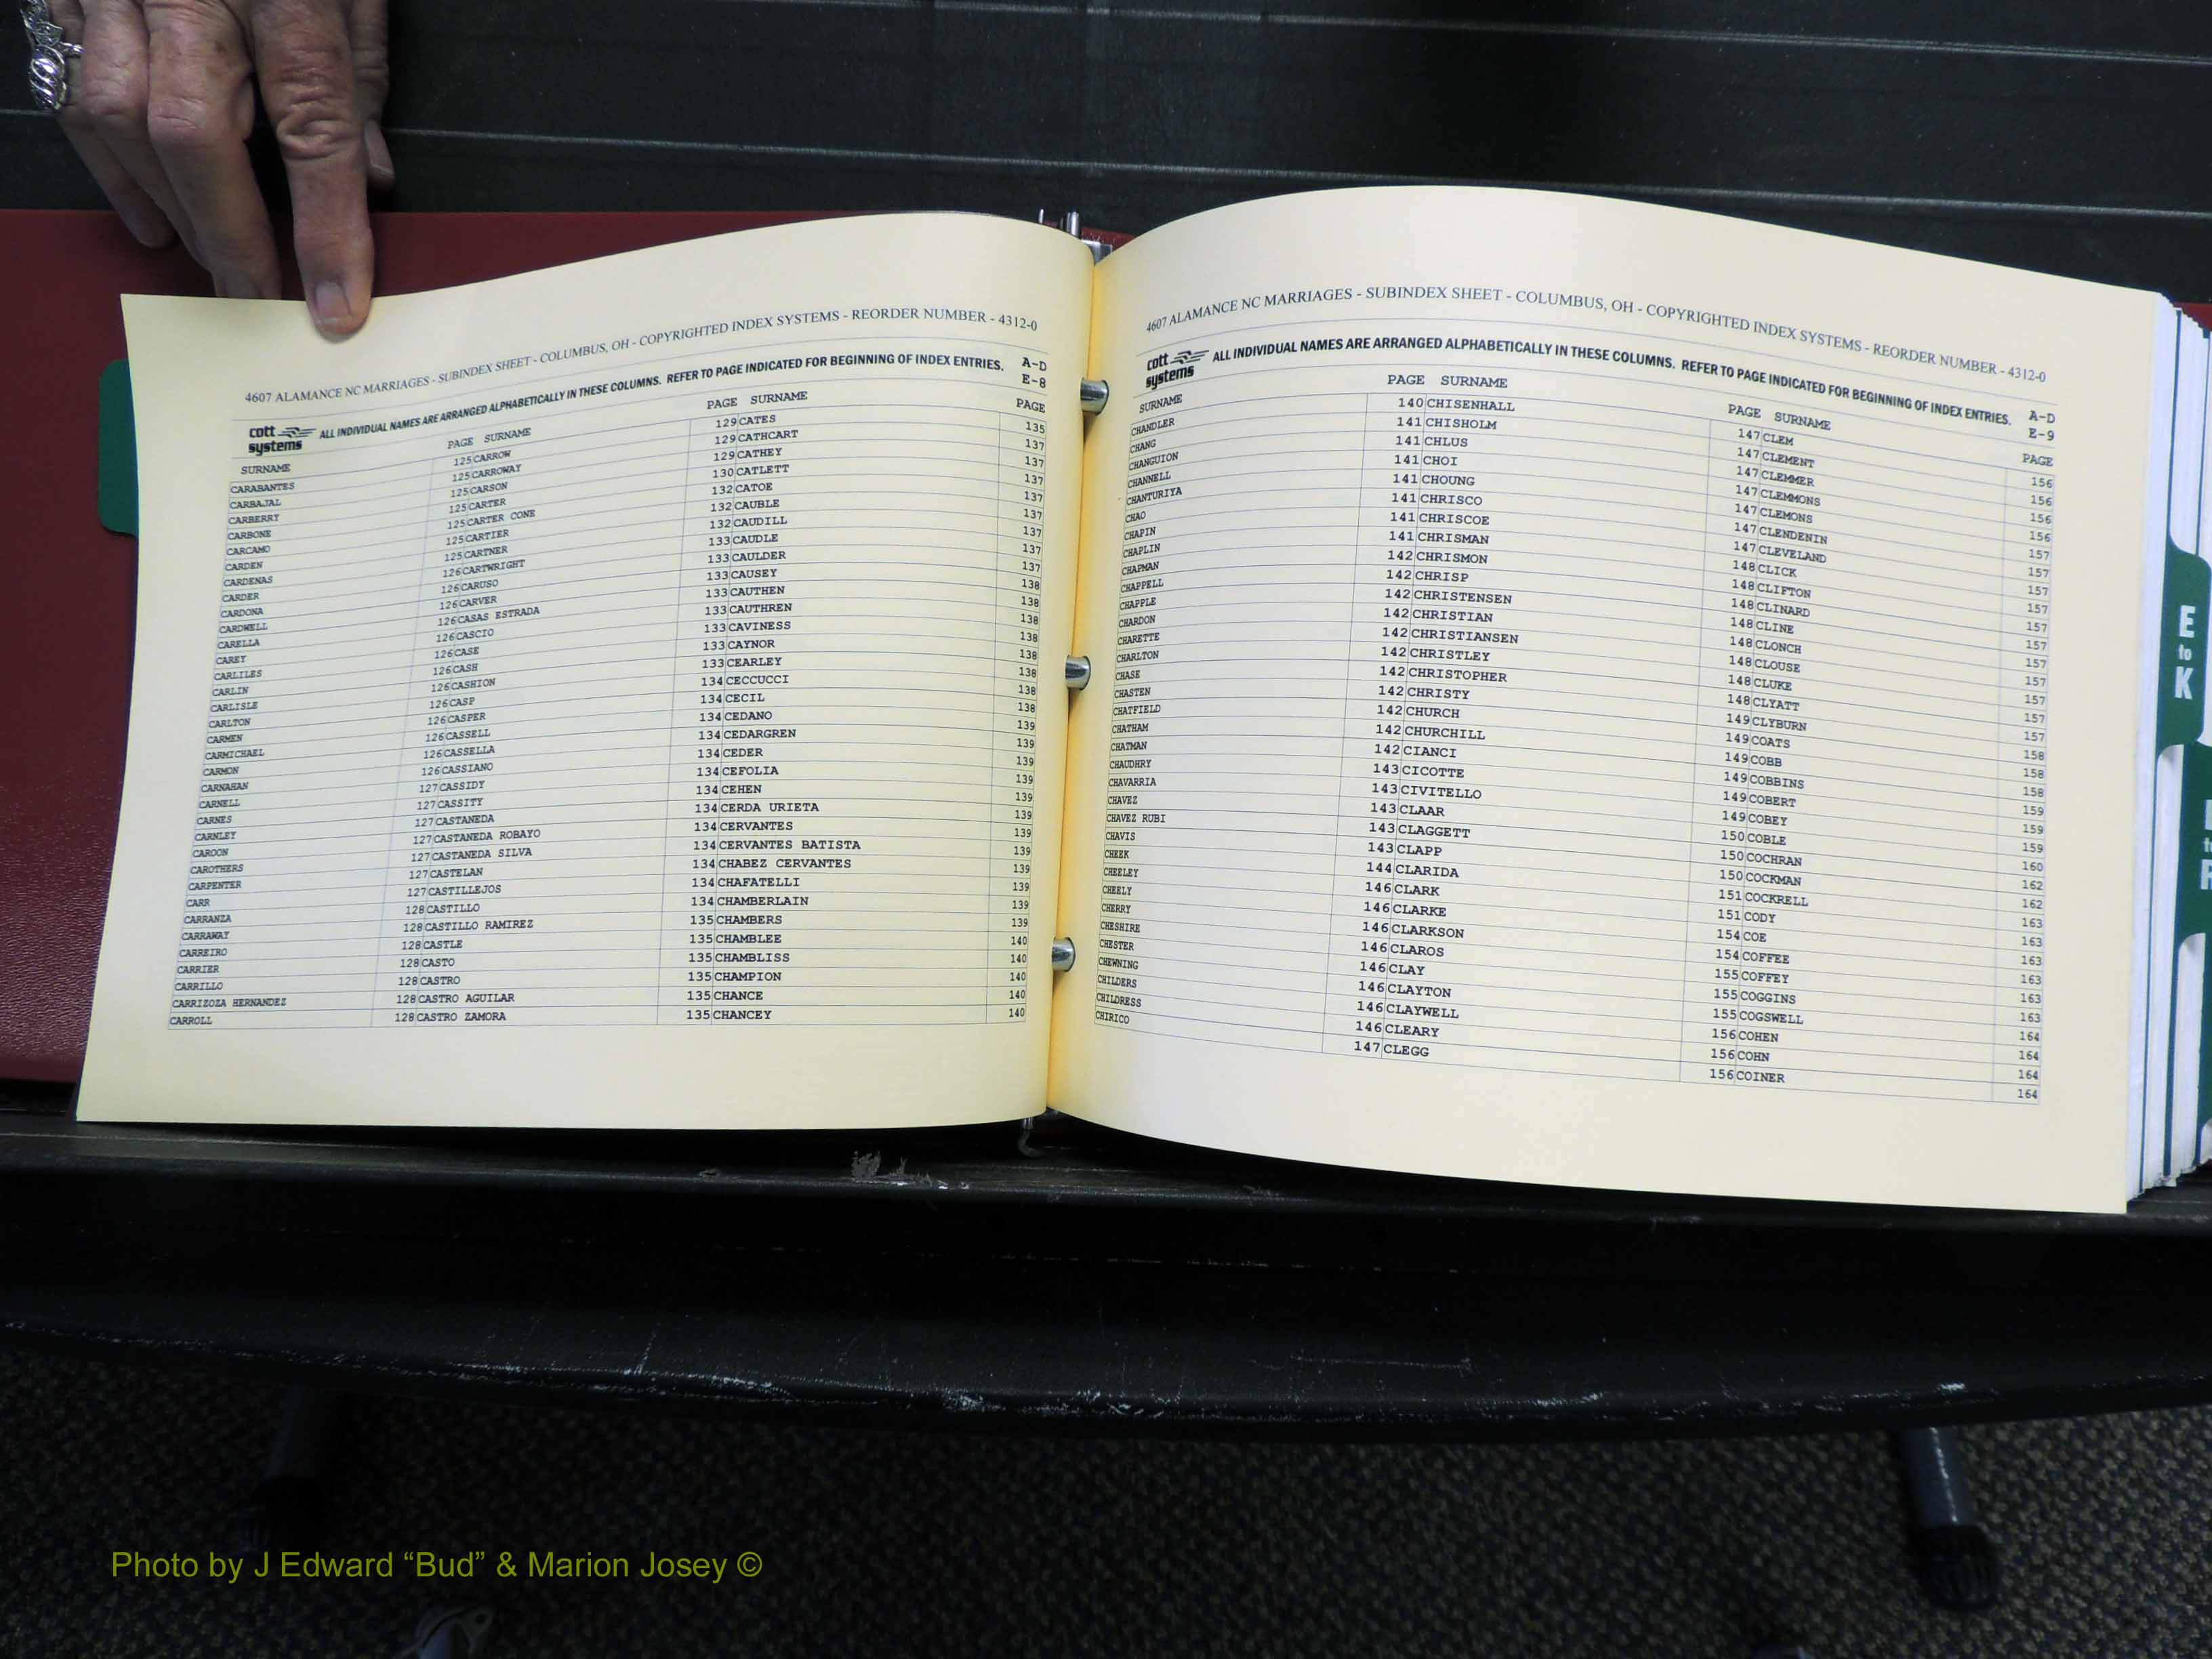 4607 ALAMANCE NC MARRIAGES - SUBINDEX SHEET - COLUMBUS, OH - COPYRIGHTED INDEX SYSTEMS - REORDER NUMBER - 4312-0
cott systems ALL INDIVIDUAL NAMES ARE ARRANGED ALPHABETICALLY IN THESE COLUMNS. REFER TO PAGE INDICATED FOR BEGINNING OF INDEX ENTRIES. A-D
E-8
SURNAME PAGE SURNAME PAGE SURNAME PAGE
CARABANTES 125 CARROW 129 CATES 135
CARBAJAL 125 CARROWAY 129 CATHCART 137
CARBERRY 125 CARSON 129 CATHEY 137
CARBONE 125 CARTER 130 CATLETT 137
CARCAMO 125 CARTER CONE 132 CATOE 137
CARDEN 125 CARTIER 132 CAUBLE 137
CARDENAS 125 CARTNER 132 CAUDILL 137
CARDER 126 CARTWRIGHT 133 CAUDLE 137
CARDONA 126 CARUSO 133 CAULDER 137
CARDWELL 126 CARVER 133 CAUSEY 138
CARELLA 126 CASAS ESTRADA 133 CAUTHEN 138
CAREY 126 CASCIO 133 CAUTHREN 138
CARLILES 126 CASE 133 CAVINESS 138
CARLIN 126 CASH 133 CAYNOR 138
CARLISLE 126 CASHION 133 CEARLEY 138
CARLTON 126 CASP 134 CECCUCCI 138
CARMEN 126 CASPER 134 CECIL 138
CARMICHAEL 126 CASSELL 134 CEDANO 139
CARMON 126 CASSELLA 134 CEDARGREN 139
CARNAHAN 126 CASSIANO 134 CEDER 139
CARNELL 127 CASSIDY 134 CEFOLIA 139
CARNES 127 CASSITY 134 CEHEN 139
CARNLEY 127 CASTANEDA 134 CERDA URIETA 139
CAROON 127 CASTANEDA ROBAYO 134 CERVANTES 139
CAROTHERS 127 CASTANEDA SILVA 134 CERVANTES BATISTA 139
CARPENTER 127 CASTELAN 134 CHABEZ CERVANTES 139
CARR 127 CASTILLEJOS 134 CHAFATELLI 139
CARRANZA 128 CASTILLO 134 CHAMBERLAIN 139
CARRAWAY 128 CASTILLO RAMIREZ 135 CHAMBERS 139
CARREIRO 128 CASTLE 135 CHAMBLEE 140
CARRIER 128 CASTO 135 CHAMBLISS 140
CARRILLO 128 CASTRO 135 CHAMPION 140
CARRIZOZA HERNANDEZ 128 CASTRO AGUILAR 135 CHANCE 140
CARROLL 128 CASTRO ZAMORA 135 CHANCEY 140
4607 ALAMANCE NC MARRIAGES - SUBINDEX SHEET - COLUMBUS, OH - COPYRIGHTED INDEX SYSTEMS - REORDER NUMBER - 4312-0
cott systems ALL INDIVIDUAL NAMES ARE ARRANGED ALPHABETICALLY IN THESE COLUMNS. REFER TO PAGE INDICATED FOR BEGINNING OF INDEX ENTRIES. A-D
E-9
SURNAME PAGE SURNAME PAGE SURNAME PAGE
CHANDLER 140 CHISENHALL 147 CLEM 156
CHANG 141 CHISHOLM 147 CLEMENT 156
CHANGUION 141 CHLUS 147 CLEMMER 156
CHANNELL 141 CHOI 147 CLEMMONS 156
CHANTURIYA 141 CHOUNG 147 CLEMONS 157
CHAO 141 CHRISCO 147 CLENDENIN 157
CHAPIN 141 CHRISCOE 147 CLEVELAND 157
CHAPLIN 141 CHRISMAN 148 CLICK 157
CHAPMAN 142 CHRISMON 148 CLIFTON 157
CHAPPELL 142 CHRISP 148 CLINARD 157
CHAPPLE 142 CHRISTENSEN 148 CLINE 157
CHARDON 142 CHRISTIAN 148 CLONCH 157
CHARETTE 142 CHRISTIANSEN 148 CLOUSE 157
CHARLTON 142 CHRISTLEY 148 CLUKE 157
CHASE 142 CHRISTOPHER 148 CLYATT 157
CHASTEN 142 CHRISTY 149 CLYBURN 158
CHATFIELD 142 CHURCH 149 COATS 158
CHATHAM 142 CHURCHILL 149 COBB 158
CHATMAN 142 CIANCI 149 COBBINS 159
CHAUDHRY 143 CICOTTE 149 COBERT 159
CHAVARRIA 143 CIVITELLO 149 COBEY 159
CHAVEZ 143 CLAAR 150 COBLE 160
CHAVEZ RUBI 143 CLAGGETT 150 COCHRAN 162
CHAVIS 143 CLAPP 150 COCKMAN 162
CHEEK 144 CLARIDA 151 COCKRELL 163
CHEELEY 146 CLARK 151 CODY 163
CHEELY 146 CLARKE 154 COE 163
CHERRY 146 CLARKSON 154 COFFEE 163
CHESHIRE 146 CLAROS 155 COFFEY 163
CHESTER 146 CLAY 155 COGGINS 163
CHEWNING 146 CLAYTON 155 COGSWELL 164
CHILDERS 146 CLAYWELL 156 COHEN 164
CHILDRESS 146 CLEARY 156 COHN 164
CHIRICO 147 CLEGG 156 COINER 164
E
to
K
Photo by J Edward “Bud” & Marion Josey ©